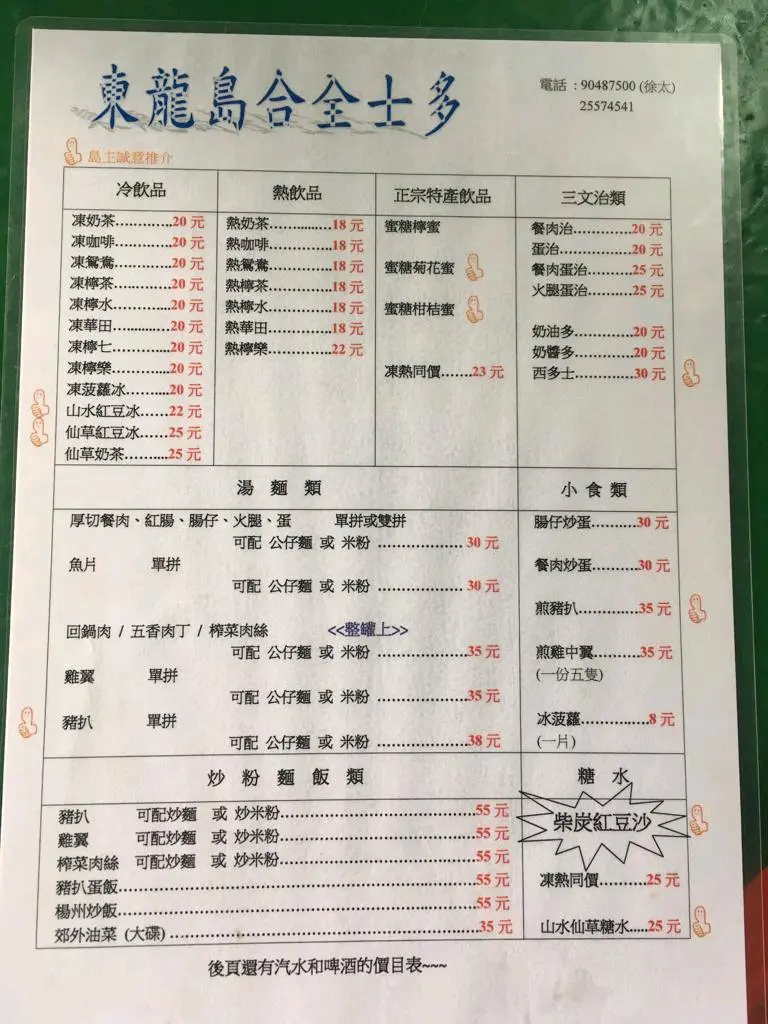 東龍島合全士多
電話 : 90487500 (徐太)
25574541
島主誠意推介
冷飲品
凍奶茶............20 元
凍咖啡............20 元
凍鴛鴦............20 元
凍檸茶............20 元
凍檸水............20 元
凍華田............20 元
凍檸七............20 元
凍檸樂............20 元
凍菠蘿冰.........20 元
山水紅豆冰......22 元
仙草紅豆冰......25 元
仙草奶茶.........25 元
熱飲品
熱奶茶............18 元
熱咖啡............18 元
熱鴛鴦............18 元
熱檸茶............18 元
熱檸水............18 元
熱華田............18 元
熱檸樂............22 元
正宗特產飲品
蜜糖檸蜜
蜜糖菊花蜜
蜜糖柑桔蜜
凍熱同價.......23 元
三文治類
餐肉治............20 元
蛋治...............20 元
餐肉蛋治.........25 元
火腿蛋治.........25 元
奶油多............20 元
奶醬多............20 元
西多士............30 元
湯 麵 類
厚切餐肉、紅腸、腸仔、火腿、蛋 單拼或雙拼
可配 公仔麵 或 米粉 .................. 30 元
魚片 單拼
可配 公仔麵 或 米粉 .................. 30 元
回鍋肉 / 五香肉丁 / 榨菜肉絲 <<整罐上>>
可配 公仔麵 或 米粉 ..................35 元
雞翼 單拼
可配 公仔麵 或 米粉 ..................35 元
豬扒 單拼
可配 公仔麵 或 米粉 ..................38 元
小 食 類
腸仔炒蛋.........30 元
餐肉炒蛋.........30 元
煎豬扒............35 元
煎雞中翼.........35 元
(一份五隻)
冰菠蘿..............8 元
(一片)
炒 粉 麵 飯 類
豬扒 可配炒麵 或 炒米粉..........................................55 元
雞翼 可配炒麵 或 炒米粉..........................................55 元
榨菜肉絲 可配炒麵 或 炒米粉..........................................55 元
豬扒蛋飯..................................................................55 元
楊州炒飯..................................................................55 元
郊外油菜 (大碟) .........................................................35 元
糖 水
柴炭紅豆沙
凍熱同價............25 元
山水仙草糖水.....25 元
後頁還有汽水和啤酒的價目表~~~